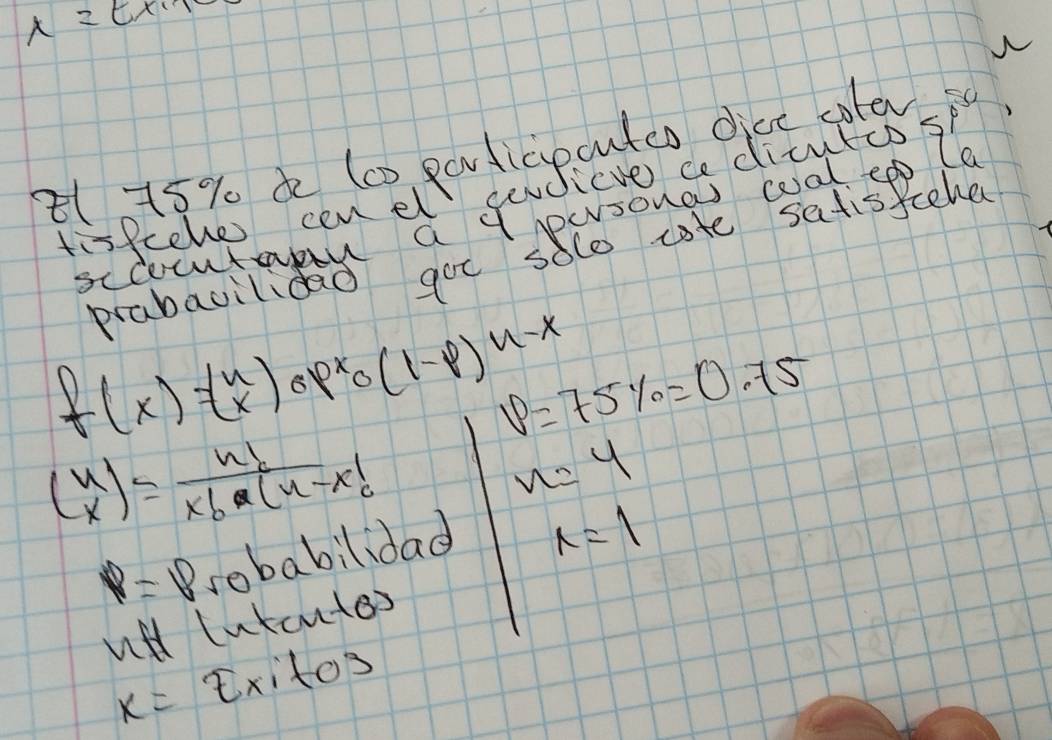 x = Exitos
El 75% de los participantes dice estar sa
tisfecho con el servicio a clientes si
se cuentan a 4 personas cual es la
probavilidad que sólo este satisfecha
f(x) = (n x) • p^x • (1-p)^n-x
(n x) = n! / x! • (n-x!
P = Probabilidad
n# Intentos
x = Exitos
p = 75% = 0.75
n = 4
x = 1